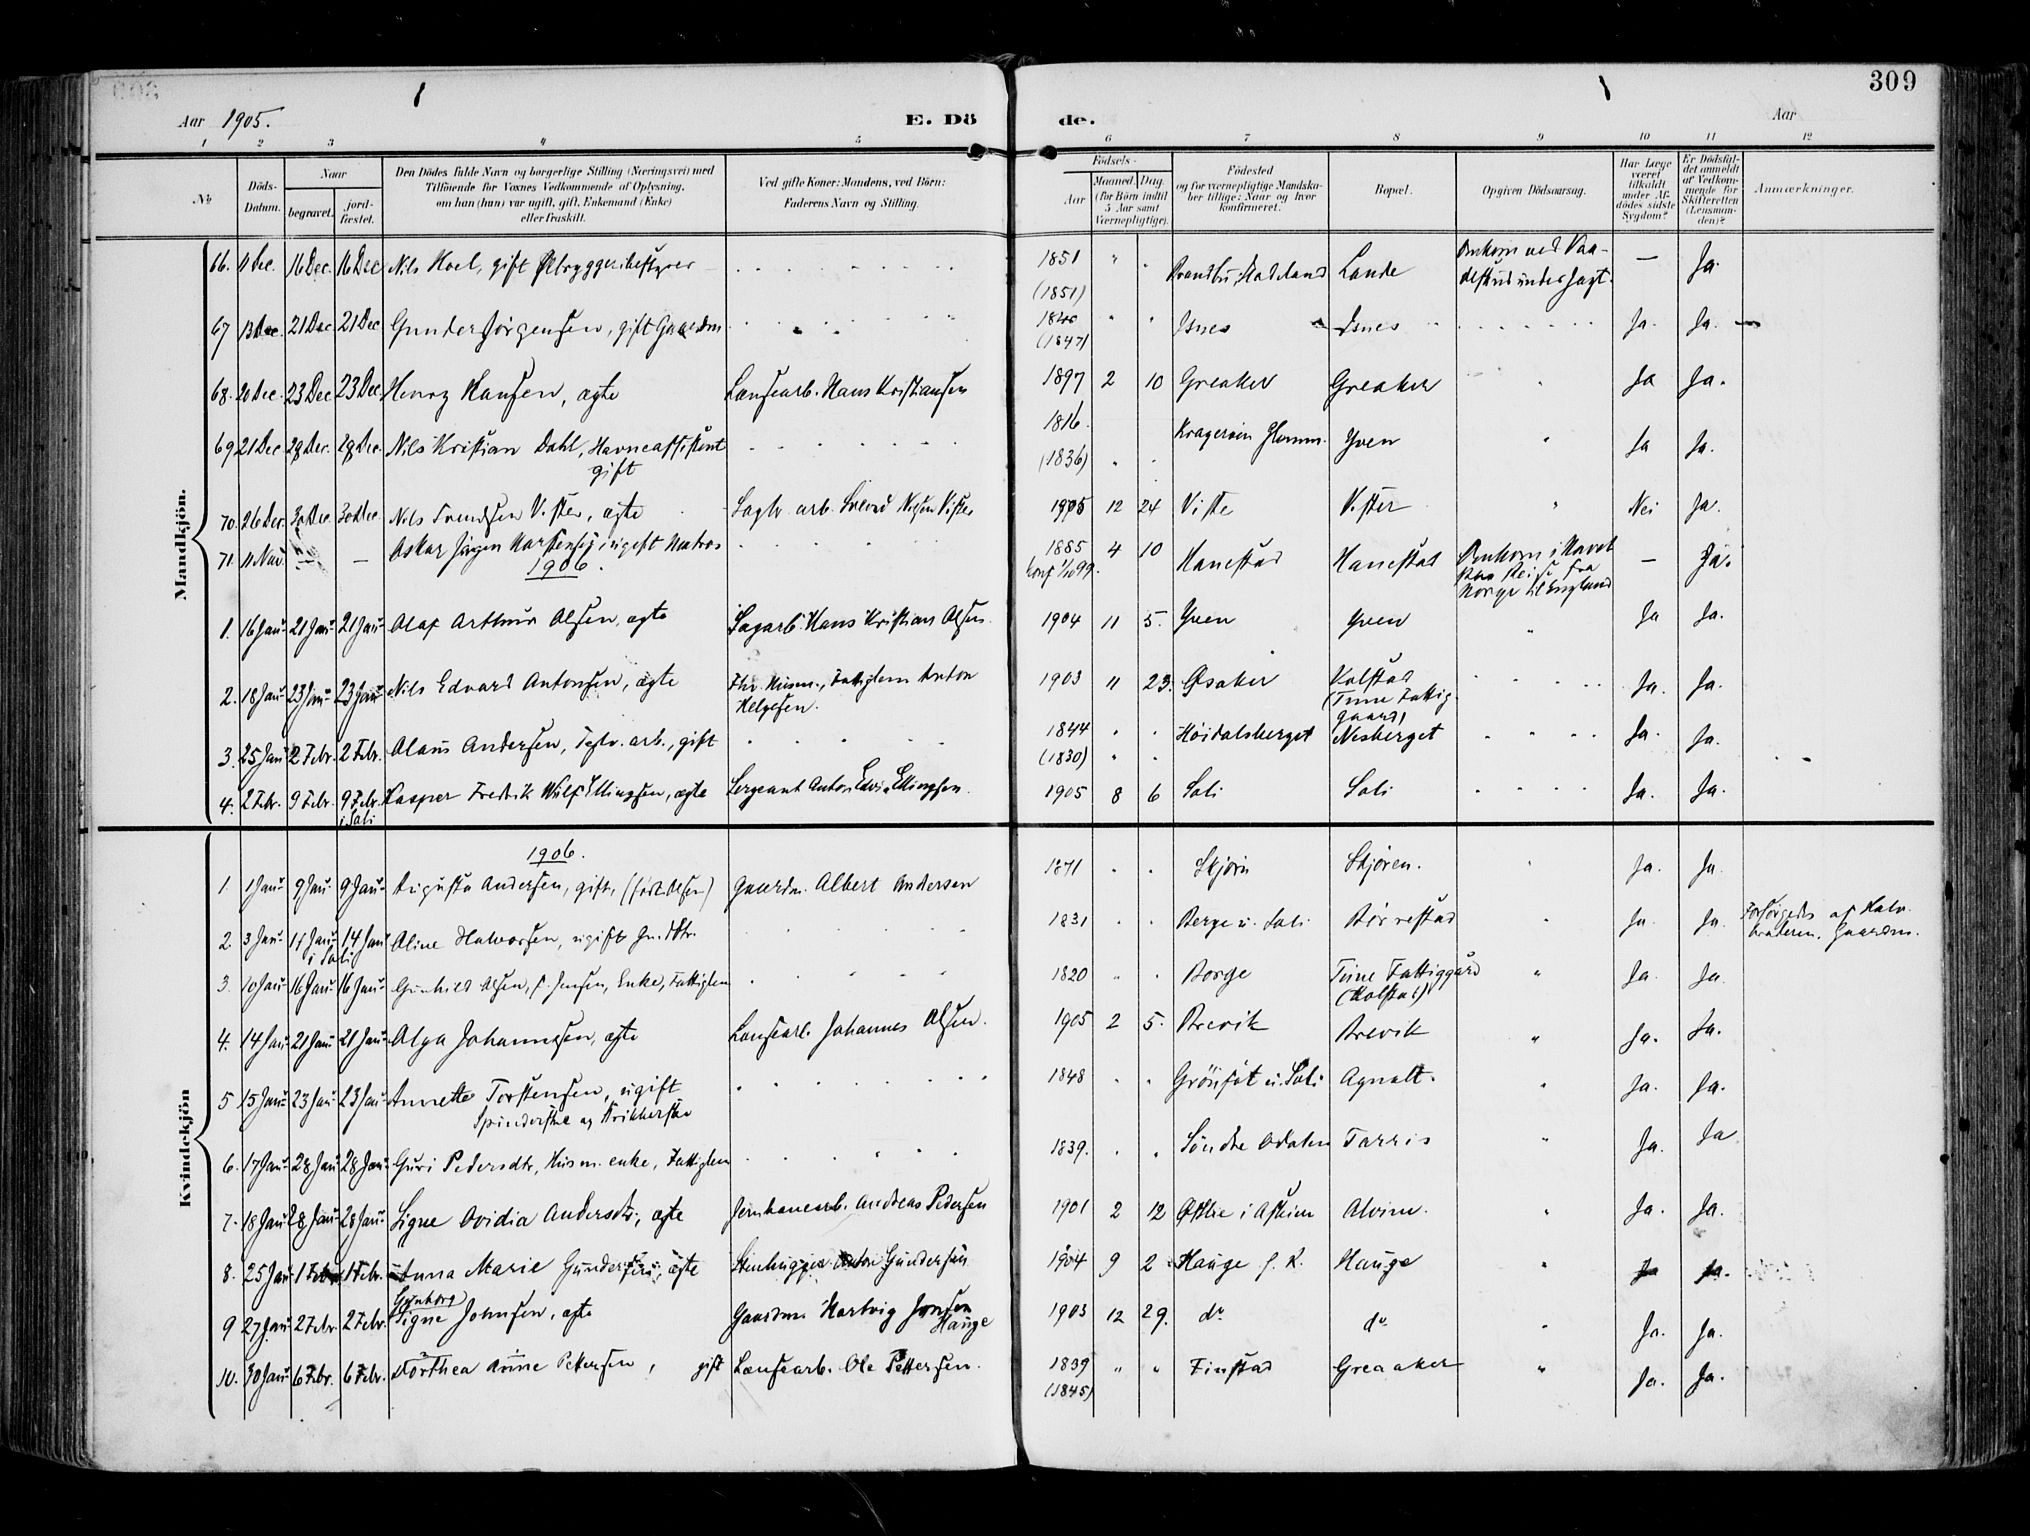 309
Aar 1905. E. Dö de. Aar
1 2 3 4 5 6 7 8 9 10 11 12
№ Döds-Datum. Naar begravet. jordfæstet. Den Dödes fulde Navn og borgerlige Stilling (Næringsvei) med Tilföiende for Voxnes Vedkommende af Oplysning, om han (hun) var ugift, gift, Enkemand (Enke) eller fraskilt. Ved gifte Koner: Mandens, ved Börn: Faderens Navn og Stilling. Födsels- Aar Maaned. Dag. (for Börn indtil 5 Aar samt Værnepligtige). Födested og for værnepligtige Mandskaber tillige: Naar og hvor konfirmeret. Bopæl. Opgiven Dödsaarsag. Har Læge været tilkaldt under Afdödes sidste Sygdom? Er Dödsfaldet anmeldt af Vedkommende for Skifteretten (Lensmanden)? Anmærkninger.
Mandkjön.
66. 11 Dec. 16 Dec. 16 Dec Nils Hoel, gift Ølbryggeribestyrer 1851 (1851) Brandbu, Hadeland Lande Omkom ved Vaadeskud under Jagt. — Ja.
67 13 Dec. 21 Dec 21 Dec Gunder Jørgensen, gift Gaardm (1847) Isnes Isnes Ja. Ja.
68. 20 Dec. 23 Dec 23 Dec Henry Hansen, ægte Lænsearb. Hans Kristiansen 1897 2 10 Greaker Greaker Ja Ja.
69 21 Dec 28 Dec. 28 Dec. Nils Kristian Dahl, Havneassistent gift 1816. (1836) Kragerøen Glemm. Yven Ja Ja.
70. 26 Dec. 30 Dec. 30 Dec. Nils Svendsen Vister, ægte Sagbr. arb. Svend Nilsen Vister 1905 12 24 Viste Vister Nei Ja.
71. 11 Nov. — — Oskar Jørgen Martensen, ugift Matros 1885 4 10 Hanestad Hanestad Omkom i Havet paa Reise fra Norge til England — Ja.
1906.
1. 16 Jan. 21 Jan 21 Jan Olaf Arthur Olsen, ægte Sagarb. Hans Kristian Olsen 1904 11 5. Yven Yven Ja Ja.
2. 18 Jan 23 Jan 23 Jan Nils Edvard Antonsen, ægte Fhv. Husm., Fattiglem Anton Helgesen. 1903 11 23. Øsaker Kolstad (Tune Fattiggaard) Ja. Ja.
3. 25 Jan 2 Febr. 2 Febr. Olaus Andersen, Teglv. arb., gift 1844 (1830) Høidalsberget Nesberget Ja. Ja.
4. 2 Febr. 9 Febr. 9 Febr. i Soli Kasper Fredrik Wulf Ellingsen, ægte Sergeant Anton Edvin Ellingsen. 1905 8 6 Soli Soli Ja. Ja.
Kvindekjön
1906.
1. 1 Jan 9 Jan. 9 Jan Augusta Andersen, gift, (født Olsen) Gaardm. Albert Andersen 1871 Skjørn Skjøren. Ja. Ja
2. 3 Jan 14 Jan i Soli 14 Jan Aline Halvorsen, ugift Gm. Dtr. 1831 Berge u. Soli Børrestad Ja. Ja. Forsørgedes af Halvbroderen, Gaardm.
3. 10 Jan 16 Jan 16 Jan Gunhild Olsen, f. Jensen, Enke, Fattiglem 1820 Borge Tune Fattiggård (Kolstad) Ja. Ja.
4. 14 Jan 21 Jan 21 Jan Olga Johannesen, ægte Lænsearb. Johannes Olsen. 1905 2 5. Brevik Brevik Ja. Ja.
5 15 Jan 23 Jan 23 Jan Annette Torstensen, ugift Spinderske og Strikkerske 1848 Grönsöt u. Soli Agnalt. Ja. Ja.
6. 17 Jan 28 Jan 28 Jan Guri Pedersdtr, Husm. enke, Fattiglem 1839. Søndre Odalen Tarris Ja. Ja
7. 18 Jan 28 Jan 28 Jan Signe Ovidia Andersdtr, ægte Jernbanearb. Andreas Pedersen 1901 2 12 Østbie i Askim Alvim. Ja. Ja.
8. 25 Jan 1 Febr 1 Febr. Anna Marie Gundersen, ægte Stenhugger Anton Gundersen 1904 9 2 Hauge f. K. Hauge Ja Ja.
9 27 Jan 2 Febr. 2 Febr. Gynborg Signe Johnsen, ægte Gaardm. Hartvig Jonsen Hauge 1903 12 29. do do Ja. Ja.
10. 30 Jan 6 Febr. 6 Febr. Dorthea Anne Pettersen, gift Lænsearb. Ole Pettersen. 1839 (1845) Finstad Greaaker Ja. Ja.